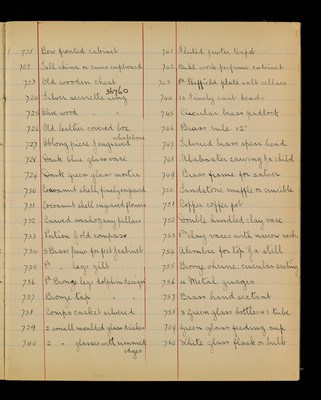 721 Bow fronted cabinet
722 Tall china or curio cupboard
723 Old wooden chest
36760
724 Silver serviette ring
725 Olive wood " "
726 Old leather covered box
727 Oblong piece engraved whalebone
728 Dark blue glass vase
729 Dark green glass mortar
730 Cocoanut shell, finely engraved
731 Cocoanut shell engraved flowers
732 Carved mahogany pillars
733 Portion of old compass
734 3 Brass paw for feet for cabinet
735 Pr " legs gilt
736 Pr Bronze legs dolphin design
737 Bronze tap
738 Comps casket silvered
739 2 small moulded glass dishes
740 2 " glasses with rimmed edges
741 Fluted pewter teapot
742 Buhl work perfume cabinet
743 Pr Sheffield plate salt cellars
744 15 Finely cast beads
745 Circular brass padlock
746 Brass rule 12"
747 Silvered brass spear head
748 Alabaster carving of a child
749 Brass frame for salver
750 Sandstone muffle or crucible
751 Copper coffee pot
752 Double handled clay vase
753 Pr clay vases with narrow necks
754 Alembic for top of a still
755 Bronze shrine, circular casting
756 16 Metal guages
757 Brass hand sextant
758 3 Green glass bottles & 1 tube
759 Green glass feeding cup
760 White glass flask or bulb